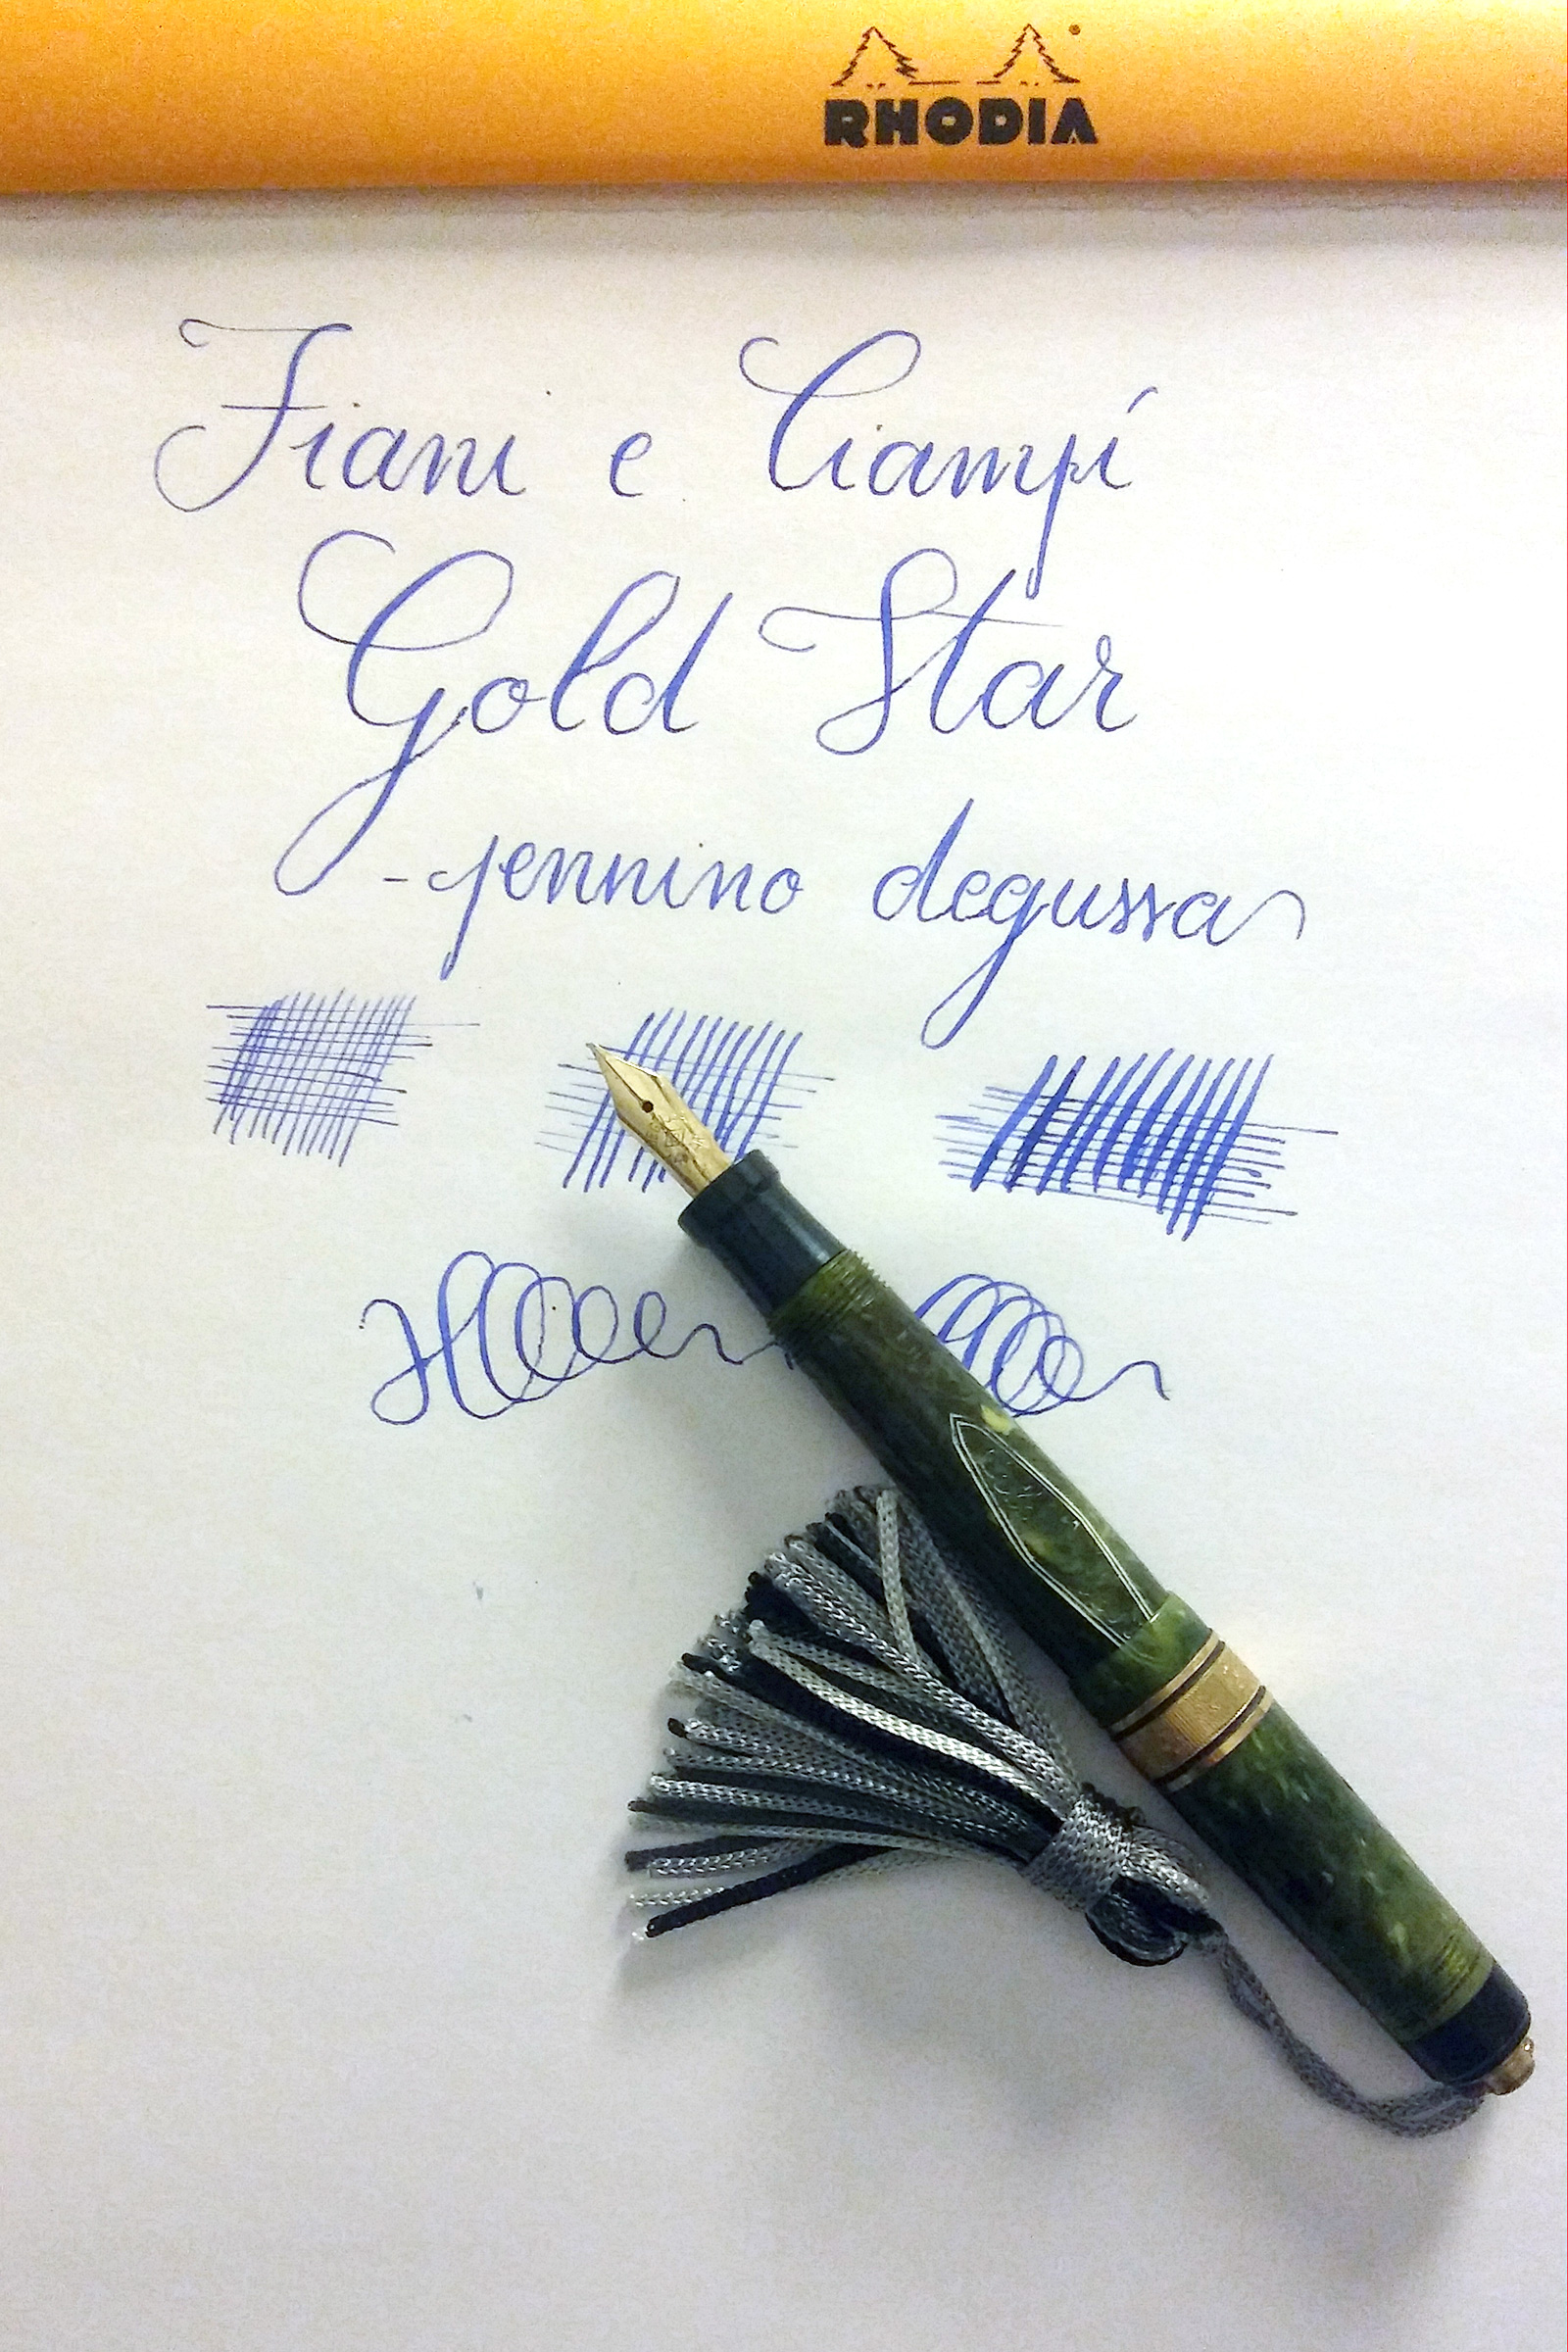 RHODIA
Fiani e Ciampi
Gold Star
- pennino degussa